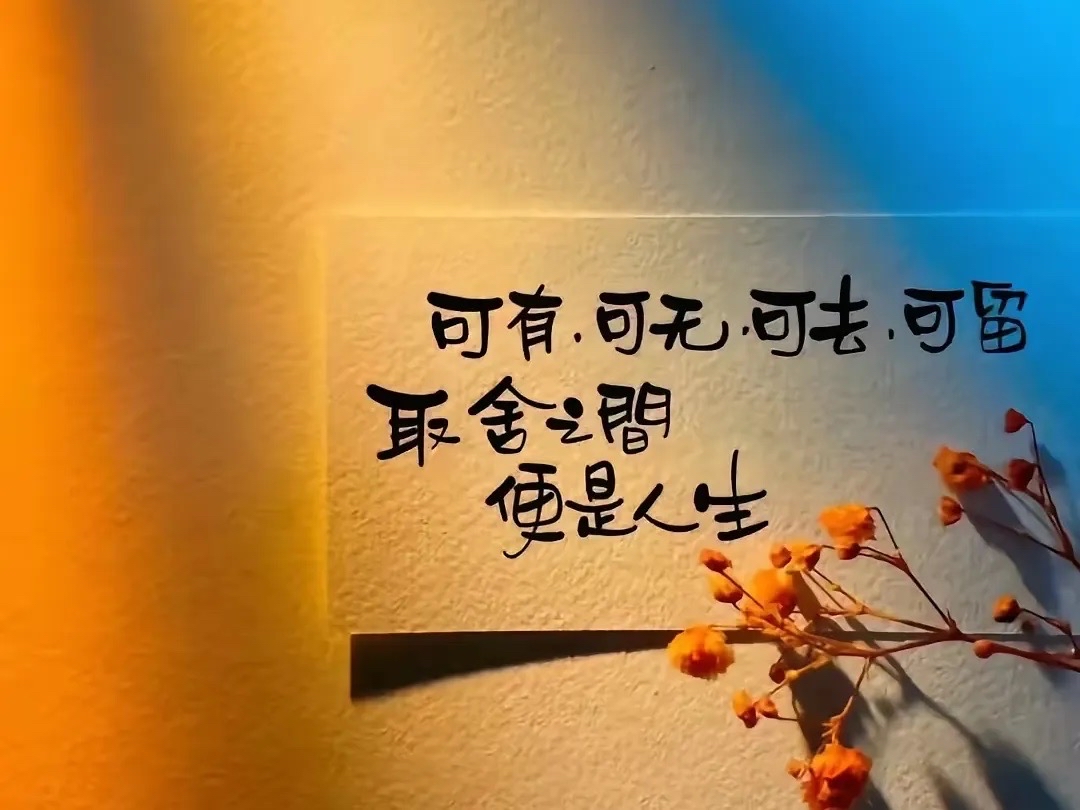 可有.可无.可去.可留
取舍之間
便是人生